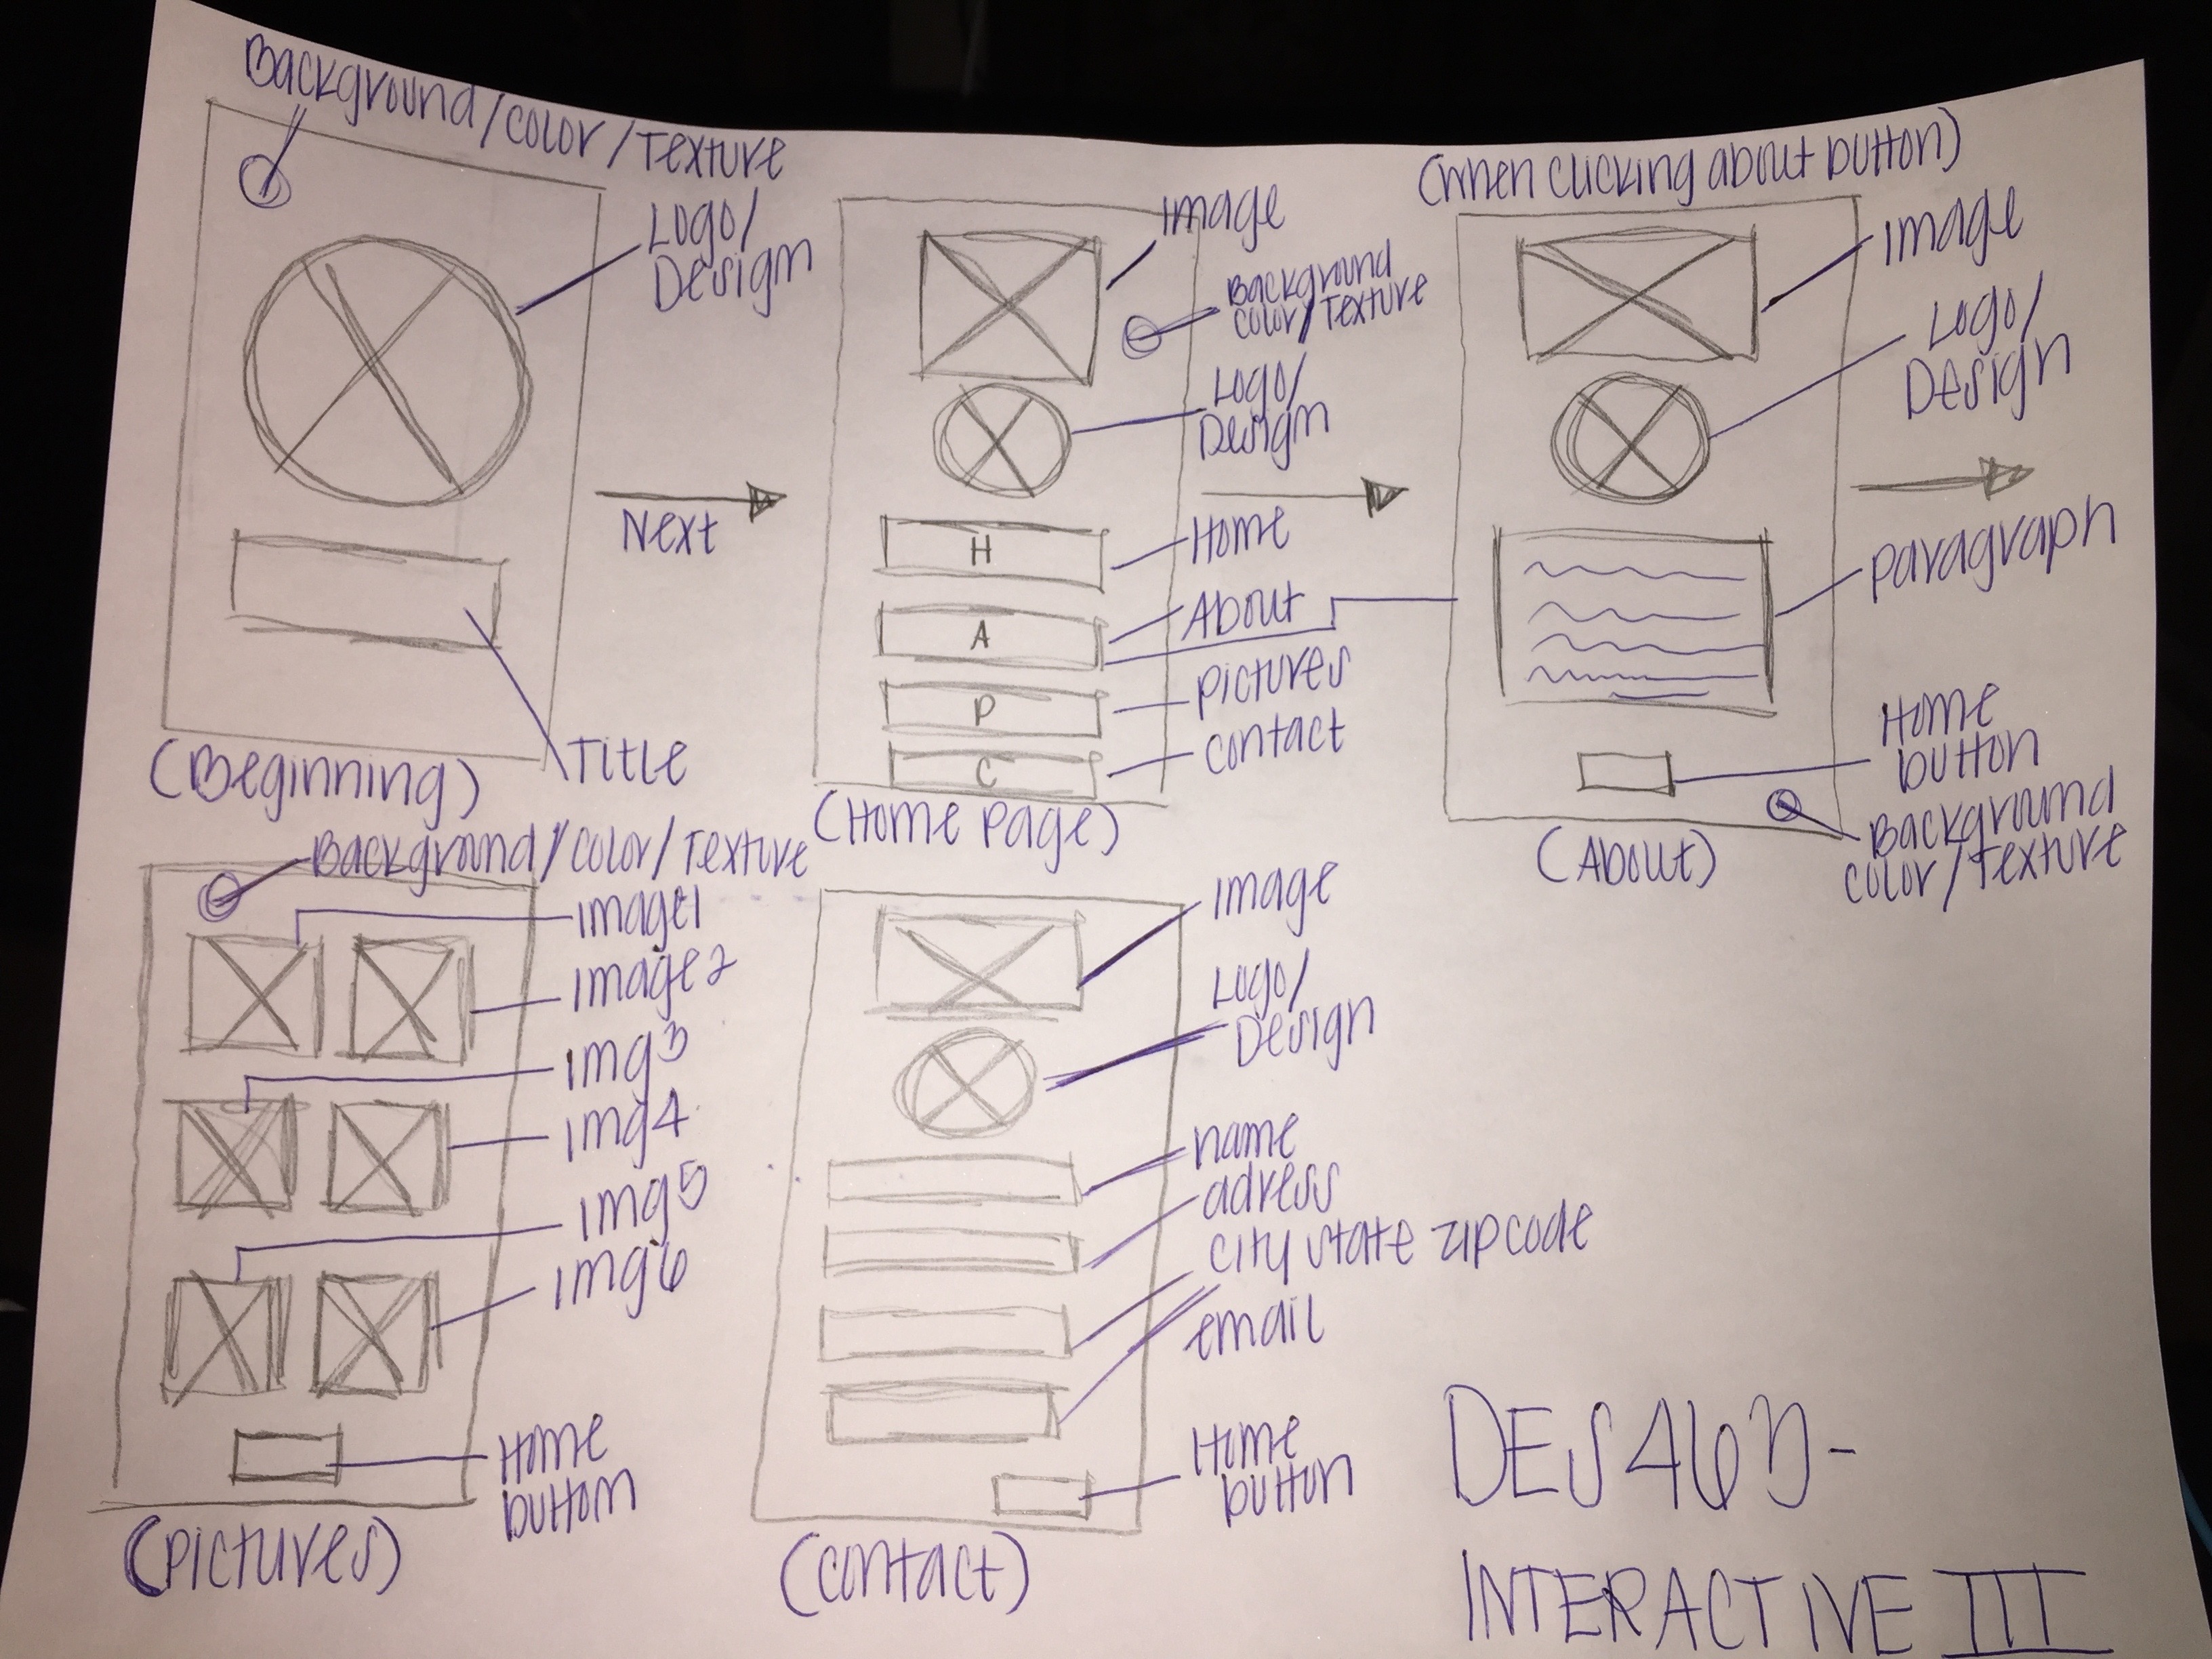 Background/color/Texture
Logo/
Design
Next
Title
(Beginning)
Image
Background
color/Texture
Logo/
Design
H
Home
A
About
P
pictures
C
contact
(Home page)
(when clicking about button)
Image
Logo/
Design
paragraph
Home
button
Background
color/Texture
(About)
Background/color/Texture
image1
image2
img3
img4
img5
img6
Home
button
(pictures)
Image
Logo/
Design
name
adress
city state zip code
email
Home
button
(contact)
DES463-
INTERACTIVE III